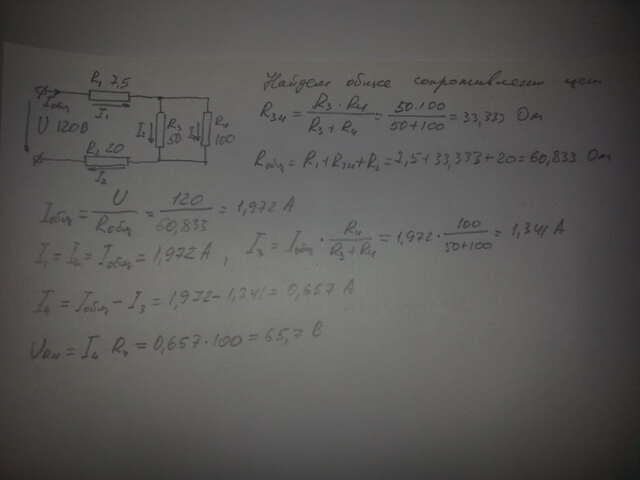 R₁ 7,5
Iобщ
I₁
U 120В
I₃ R₃ 50
I₄ R₄ 100
R₂ 20
I₂
Найдем общее сопротивление цепи
R₃₄ = R₃·R₄/(R₃+R₄) = 50·100/(50+100) = 33,333 Ом
Rобщ = R₁+R₃₄+R₂ = 7,5+33,333+20 = 60,833 Ом
Iобщ = U/Rобщ = 120/60,833 = 1,972 А
I₁ = I₂ = Iобщ = 1,972 А, I₃ = Iобщ · R₄/(R₃+R₄) = 1,972 · 100/(50+100) = 1,341 А
I₄ = Iобщ − I₃ = 1,972 − 1,341 = 0,657 А
= I₄ R₄ = 0,657·100 = 65,7 В